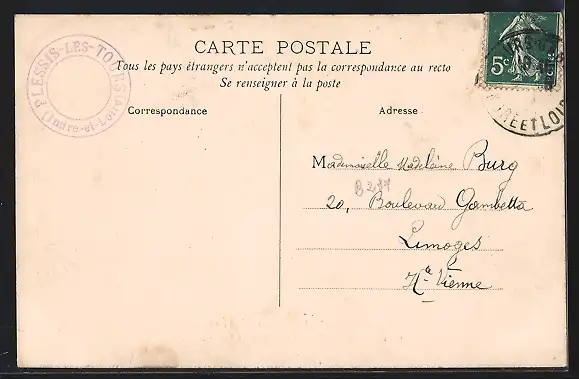 CARTE POSTALE
Tous les pays étrangers n'acceptent pas la correspondance au recto
Se renseigner à la poste
PLESSIS-LES-TOURS
(Indre-et-Loire)
5c
ET LOIR
Correspondance
Adresse
Mademoiselle Madeleine Burg
20, Boulevard Gambetta
Limoges
Hte Vienne